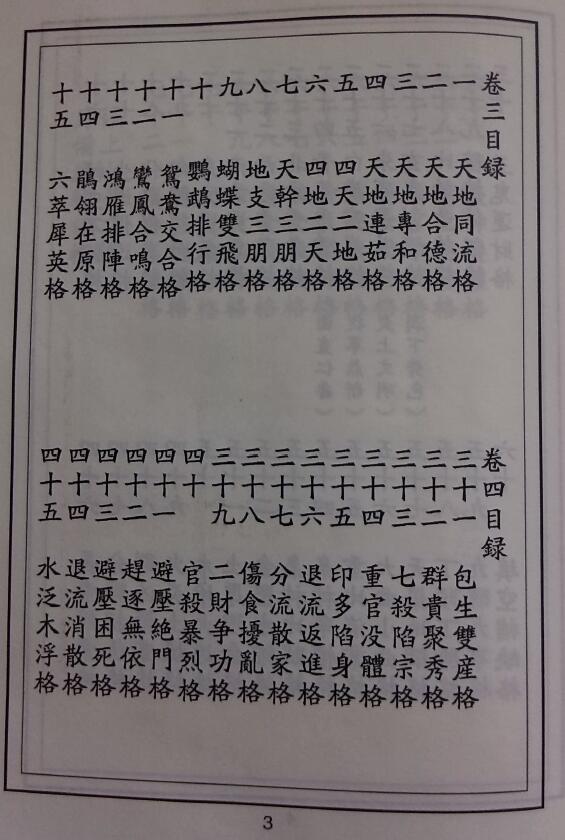 卷三目録
一 天地同流格
二 天地合德格
三 天地專和格
四 天地連茹格
五 四天二地格
六 四地二天格
七 天幹三朋格
八 地支三朋格
九 蝴蝶雙飛格
十 鸚鵡排行格
十一 鴛鴦交合格
十二 鸞鳳合鳴格
十三 鴻雁排陣格
十四 鵑翎在原格
十五 六萃犀英格
卷四目録
三十一 包生雙産格
三十二 群貴聚秀格
三十三 七殺陷宗格
三十四 重官没體格
三十五 印多陷身格
三十六 退流返進格
三十七 分流散家格
三十八 傷食擾亂格
三十九 二財争功格
四十 官殺暴烈格
四十一 避壓絶門格
四十二 趕逐無依格
四十三 避壓困死格
四十四 退流消散格
四十五 水泛木浮格
3